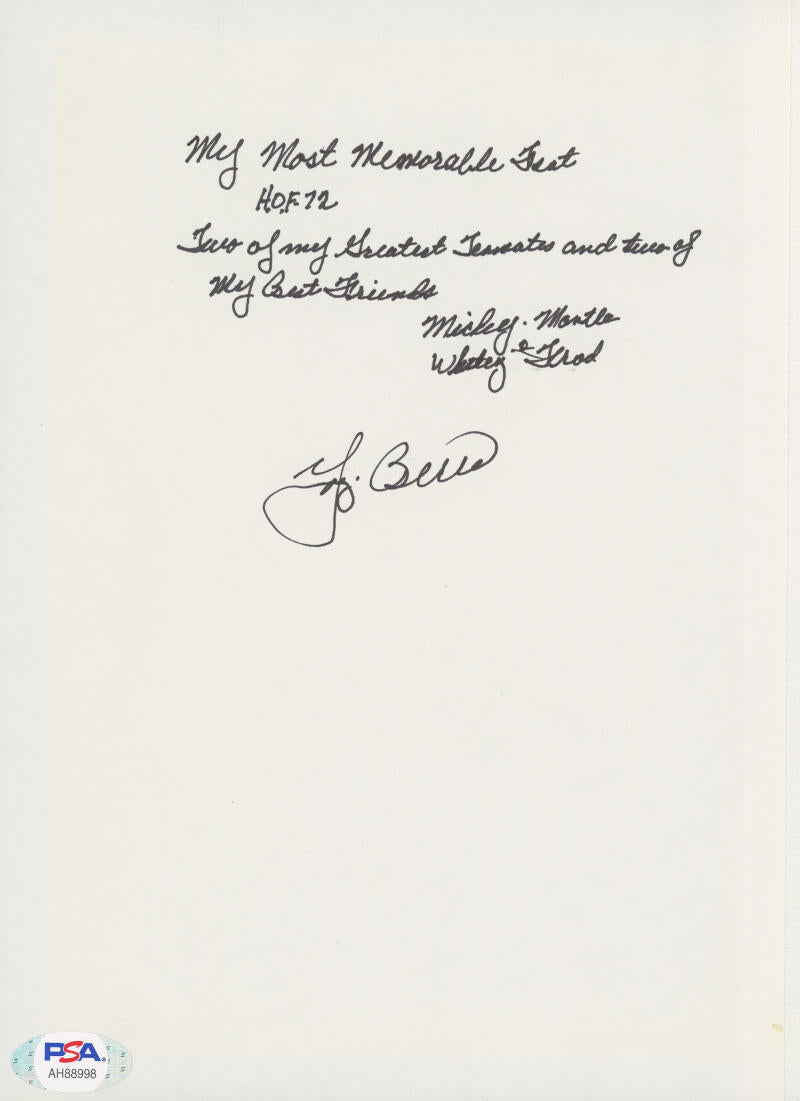 My Most Memorable Feat
H.O.F. 72
Two of my Greatest Teamates and two of
My Best Friends
Mickey. Mantle
Whitey & Ford
Yogi Berra
PSA
AH88998